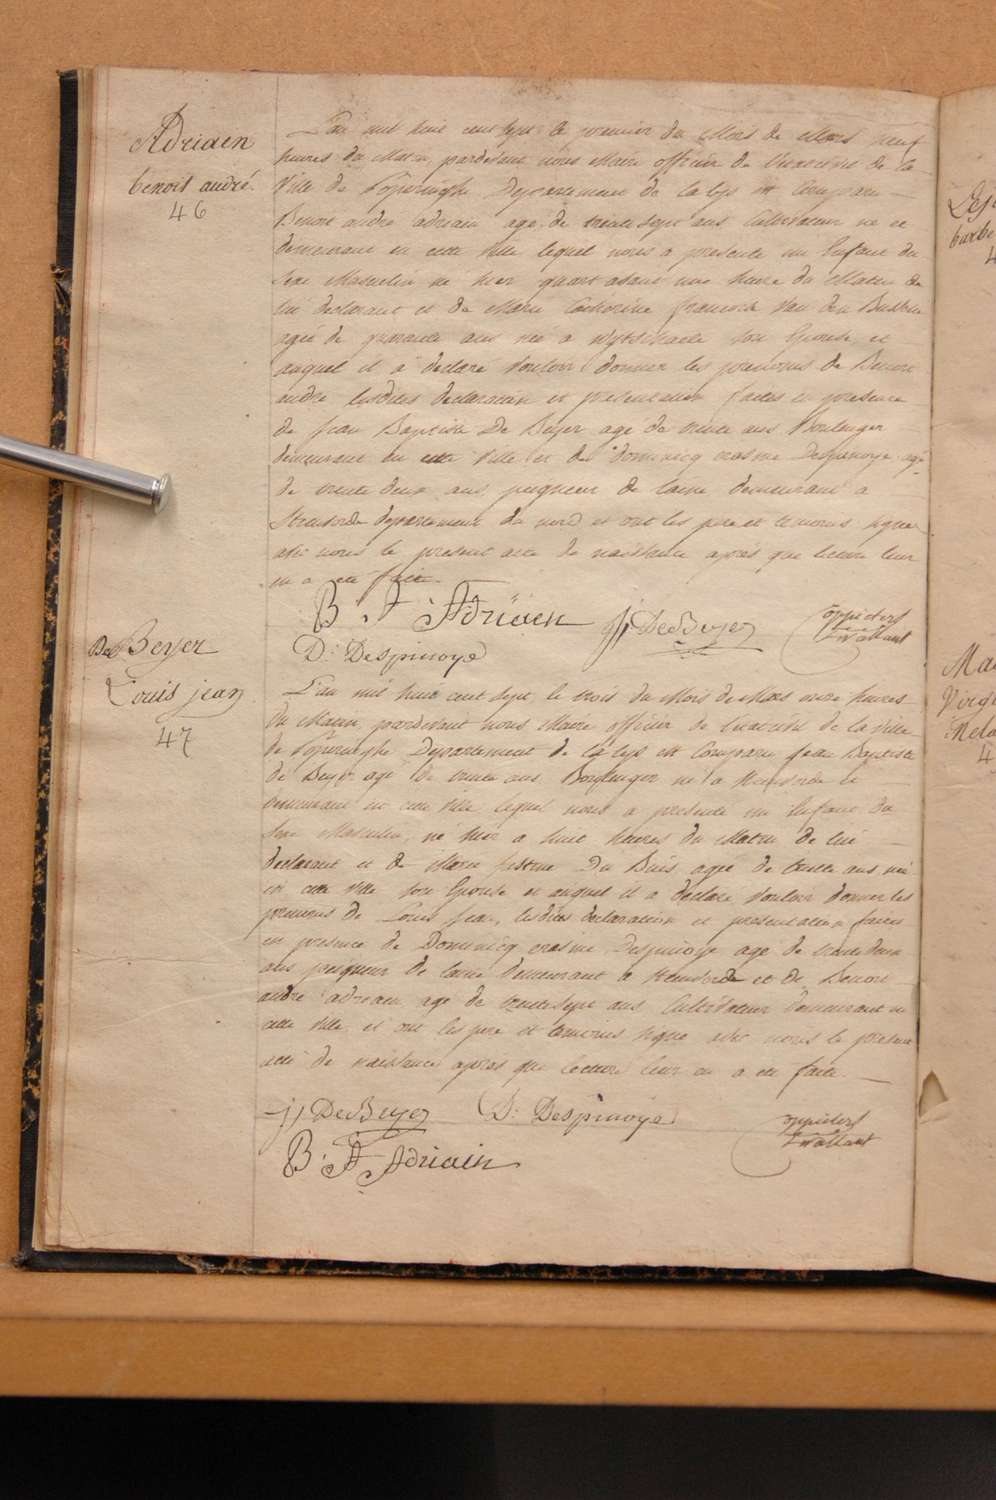 Adriaen
benoit andré.
46
L'an mil huit cent sept le premier du Mois de Mars neuf
heures du Matin, pardevant nous Maire officier de l'etat civil de la
Ville de Poperinghe Departement de la lys est Comparu
Benoit andré adriaen agé de trente sept ans Cultivateur né et
demeurant en cette Ville lequel nous a presenté un Enfant du
sexe Masculin né hier quart avant une heure du Matin de
lui declarant et de Marie Catherine francoise Van den Bussche
agée de quarante ans née a Wytschaete son Epouse, et
auquel il a declaré Vouloir donner les prenoms de Benoit
andré lesdites declaration et presentation faites en presence
de Jean Baptiste De Beyer agé de trente ans Boulenger
demeurant en cette Ville et de dominicq erasme Despinoye agé
de trente deux ans, peigneur de laine demeurant a
Steenvorde departement du nord et ont les pere et temoins signé
avec nous le present acte de naissance après que lecture leur
en a eté faite.
B. A Adriaen
JJ DeBeyer
D: Despinoye
De Beyer
Louis jean
47
L'an mil huit cent sept le trois du Mois de Mars onze heures
du Matin, pardevant nous Maire officier de l'etat civil de la Ville
de Poperinghe Departement de la lys est Comparu Jean Baptiste
de Beyer agé de trente ans Boulenger né a Steenvorde et
demeurant en cette Ville lequel nous a presenté un Enfant du
sexe Masculin, né hier a huit heures du Matin de lui
declarant et de Marie Justine Du Buis agée de trente ans née
en cette Ville son Epouse et auquel il a declaré Vouloir donner les
prenoms de Louis Jean, lesdites declaration et presentation faites
en presence de Dominicq erasme Despinoye agé de trente deux
ans peigneur de laine demeurant a Steenvorde et de Benoit
andré adriaen agé de trente sept ans Cultivateur demeurant en
cette Ville, et ont les pere et temoins signé avec nous le present
acte de naissance après que lecture leur en a eté faite.
JJ DeBeyer
D: Despinoye
B. A Adriaen